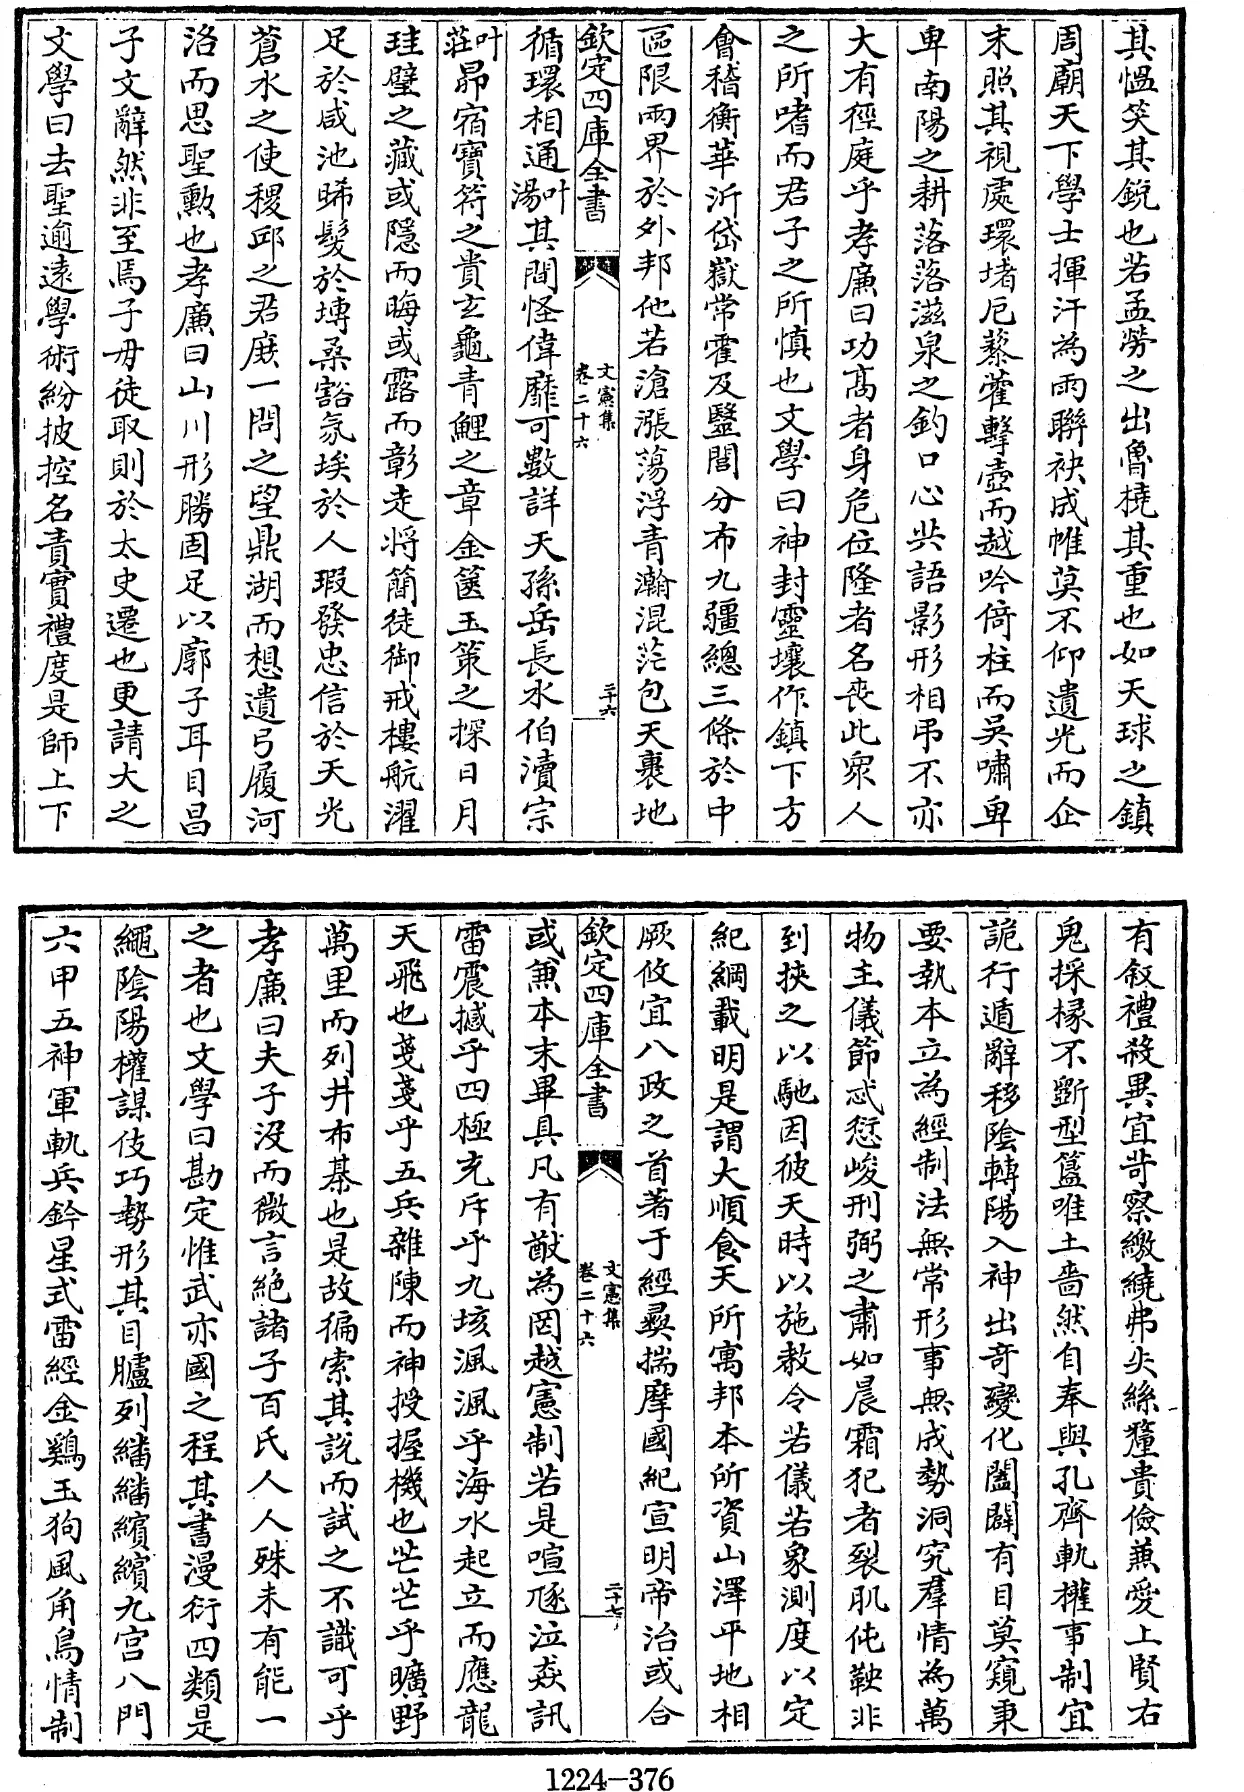 其慍笑其鋭也若孟勞之出魯橈其重也如天球之鎮
周廟天下學士揮汗為雨聯袂成帷莫不仰遺光而企
末照其視處環堵厄藜藿擊壺而越吟倚柱而吳嘯卑
卑南陽之耕落落滋泉之釣口心共語影形相弔不亦
大有徑庭乎孝廉曰功高者身危位隆者名喪此衆人
之所嗜而君子之所慎也文學曰神封靈壤作鎮下方
會稽衡華沂岱嶽常霍及毉閭分布九疆總三條於中
區限兩界於外邦他若滄漲蕩浮青瀚混茫包天裹地
欽定四庫全書
文憲集
卷二十六
二十六
循環相通叶湯其間怪偉靡可數詳天孫岳長水伯瀆宗
叶莊昴宿寶符之貴玄龜青鯉之章金篋玉策之探日月
珪璧之藏或隱而晦或露而彰走將簡徒御戒樓航濯
足於咸池晞髮於塼桑豁氛埃於人瑕發忠信於天光
蒼水之使稷邱之君庻一問之望鼎湖而想遺弓履河
洛而思聖勲也孝廉曰山川形勝固足以廓子耳目昌
子文辭然非至焉子毋徒取則於太史遷也更請大之
文學曰去聖逾遠學術紛披控名責實禮度是師上下
有叙禮殺異宜苛察繳繞弗失絲釐貴儉兼愛上賢右
鬼採椽不斵型簋唯土嗇然自奉與孔齊軌權事制宜
詭行遁辭移陰轉陽入神出竒變化闔闢有目莫窺秉
要執本立為經制法無常形事無成勢洞究羣情為萬
物主儀節忒愆峻刑弼之肅如晨霜犯者裂肌伅鞅非
到挾之以馳因彼天時以施敎令若儀若象測度以定
紀綱載明是謂大順食天所寓邦本所資山澤平地相
厥攸宜八政之首著于經彛揣摩國紀宣明帝治或合
欽定四庫全書
文憲集
卷二十六
二十七
或兼本末畢具凡有猷為罔越憲制若是喧豗泣猋訊
雷震撼乎四極充斥乎九垓渢渢乎海水起立而應龍
天飛也戔戔乎五兵雜陳而神授握機也茫茫乎曠野
萬里而列井布棊也是故徧索其説而試之不識可乎
孝廉曰夫子没而微言絶諸子百氏人人殊未有能一
之者也文學曰勘定惟武亦國之程其書漫衍四類是
繩陰陽權謀伎巧勢形其目臚列繙繙繽繽九宫八門
六甲五神軍軌兵鈐星式雷經金鷄玉狗風角鳥情制
1224—376